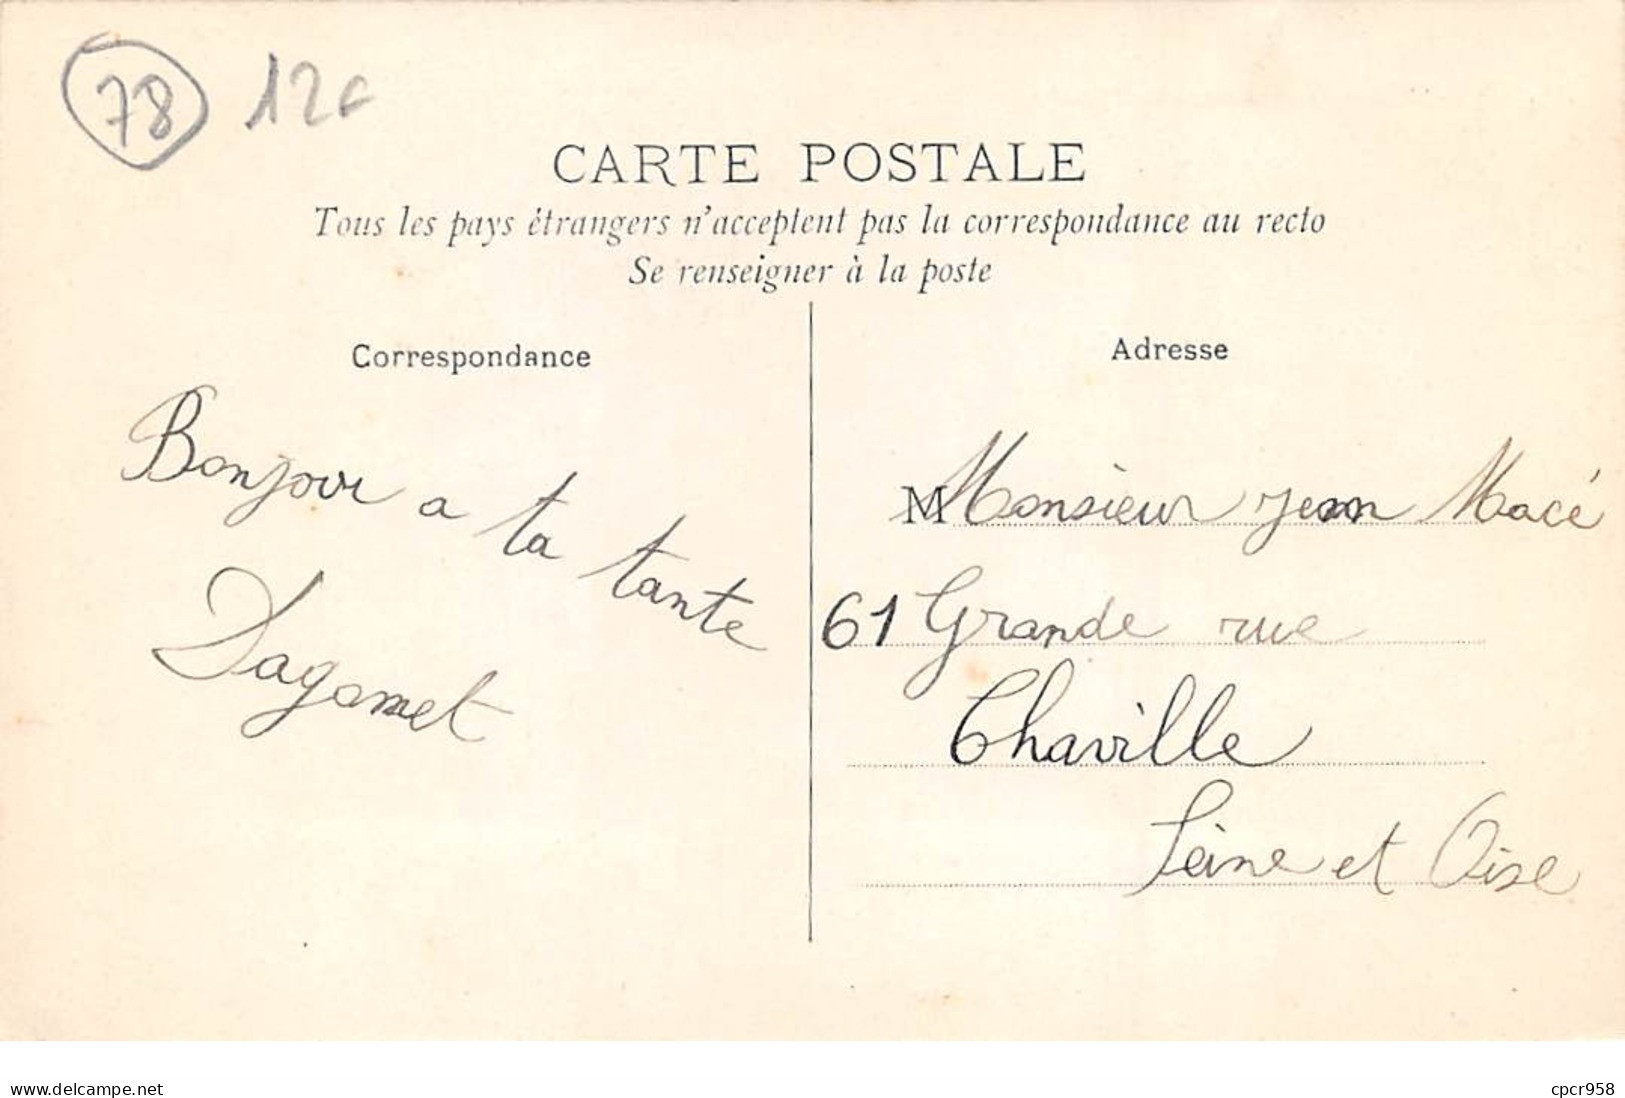 78 12c
CARTE POSTALE
Tous les pays étrangers n'acceptent pas la correspondance au recto
Se renseigner à la poste
Correspondance
Bonjour a ta tante
Dagomet
Adresse
M Monsieur jean Macé
61 Grande rue
Chaville
Seine et Oise
www.delcampe.net
cpcr958